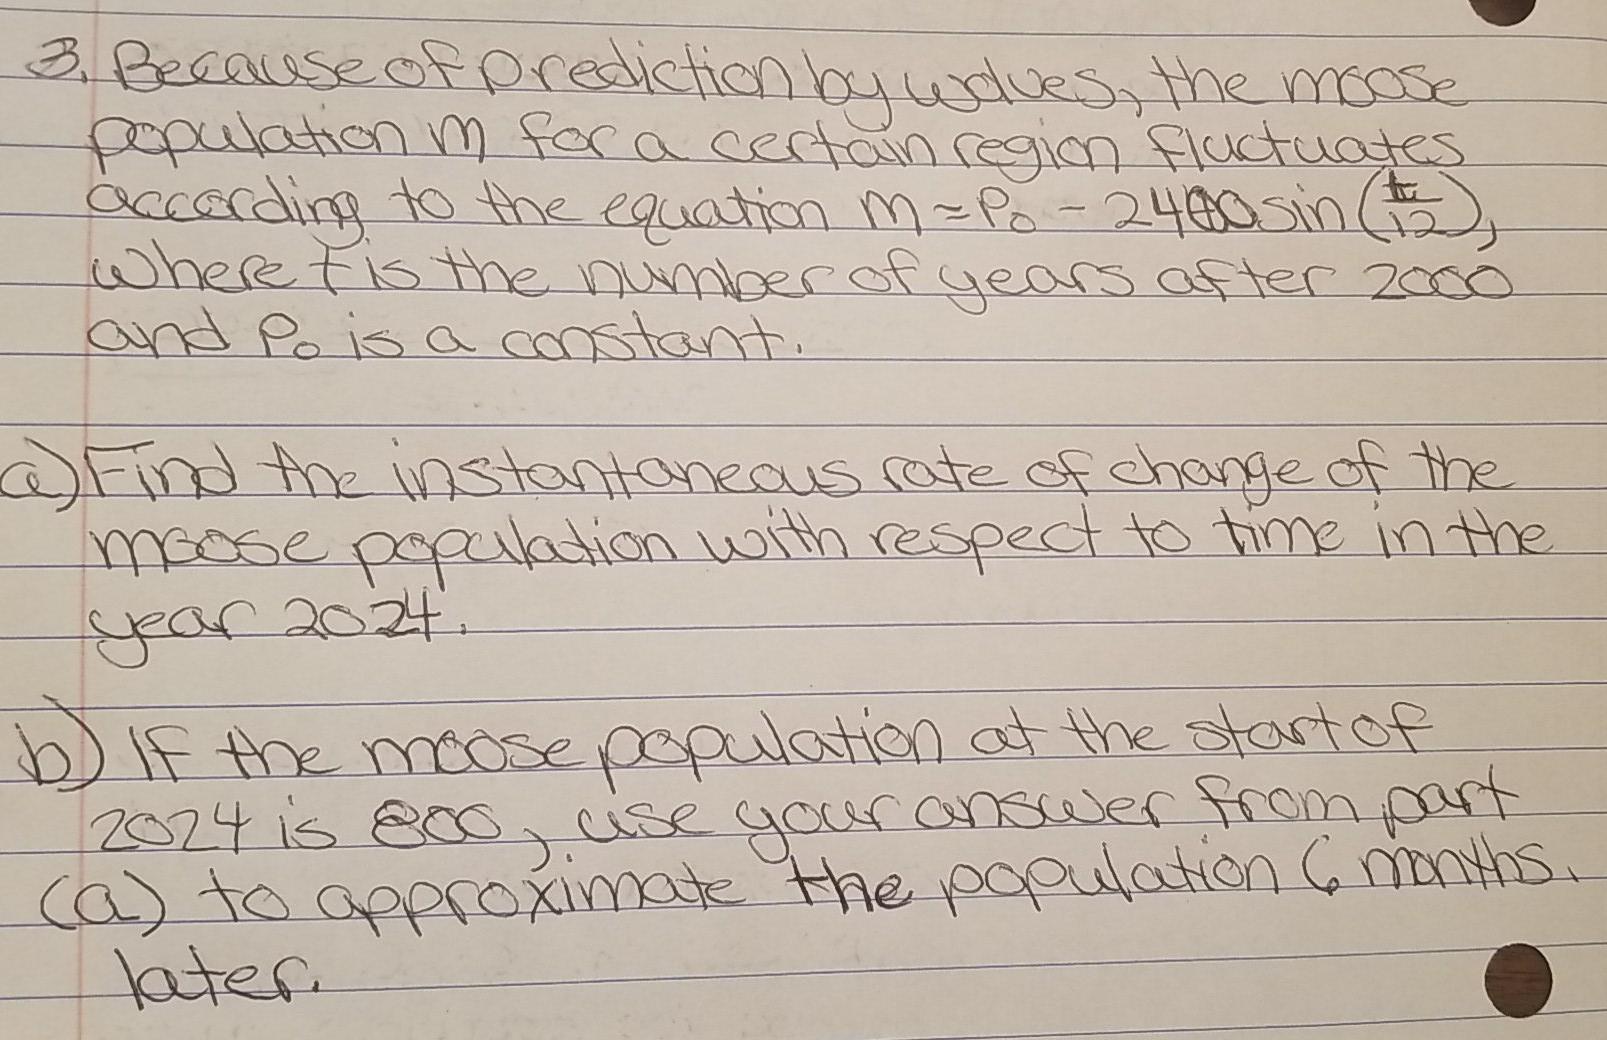 3. Because of prediction by wolves, the moose
population m for a certain region fluctuates
according to the equation m = P₀ - 2400 sin (t/12),
where t is the number of years after 2000
and P₀ is a constant.
a) Find the instantaneous rate of change of the
moose population with respect to time in the
year 2024.
b) If the moose population at the start of
2024 is 800, use your answer from part
(a) to approximate the population 6 months.
later.